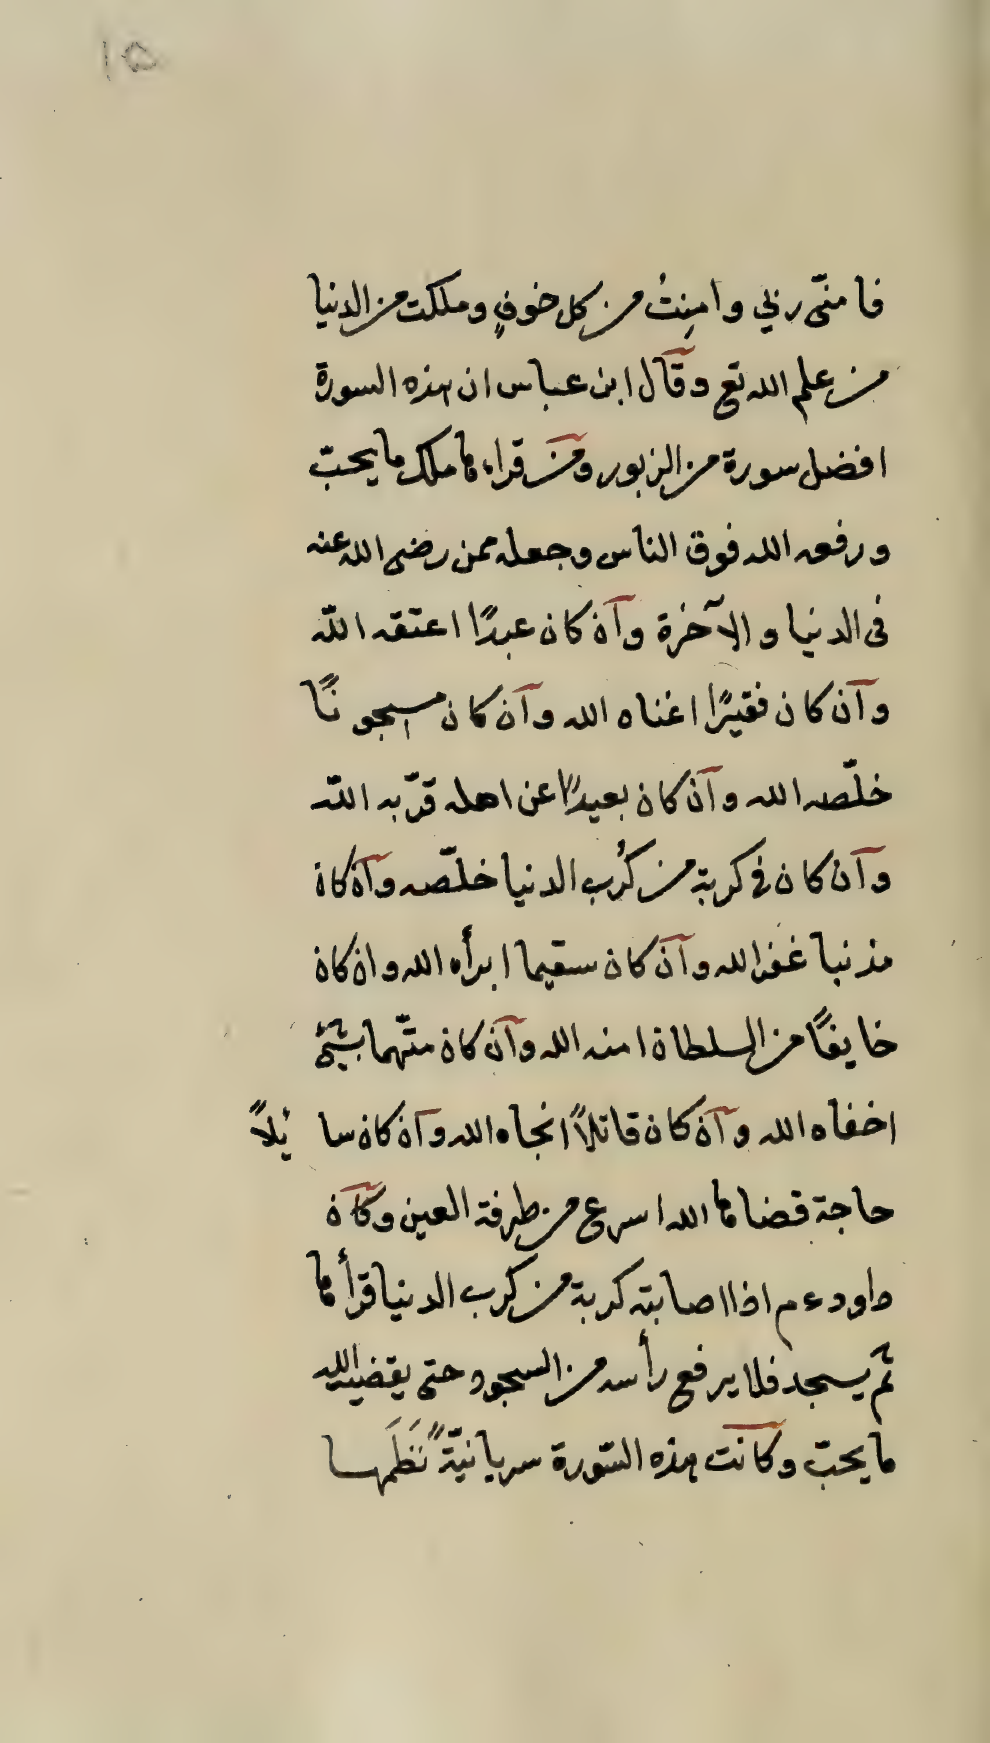 ١٥
فامنّى ربّي وامِنِتُ من كل خوفٍ وملكت من الدنيا
من علم الله تع وقال ابن عباس ان هذه السورة
افضل سورة من الزبور ومن قراها ملك ما يحبّ
ورفعه الله فوق الناس وجعله ممن رضى الله عنه
فى الدنيا والآخرة وان كان عبدًا اعتقه اللّه
وان كان فقيرًا اغناه الله وان كان مسجونًا
خلّصه الله وان كان بعيدًا عن اهله قرّبه اللّه
وان كان فى كربة من كُرب الدنيا خلّصه وان كان
مذنبا غفر الله وان كان سقيما ابرأه الله وان كان
خايفًا من السلطان امنه الله وان كان متّهما بشئ
اخفاه الله وان كان قاتلاً انجاه الله وان كان سا ئلاً
حاجة قضاها الله اسرع من طرفة العين وكان
داود عم اذا اصابته كربة من كرب الدنيا قرأها
ثم يسجد فلا يرفع رأسه من السجود حتى يقضى الله
ما يحبّ وكانت هذه السّورة سريانيّةً نَظَمها